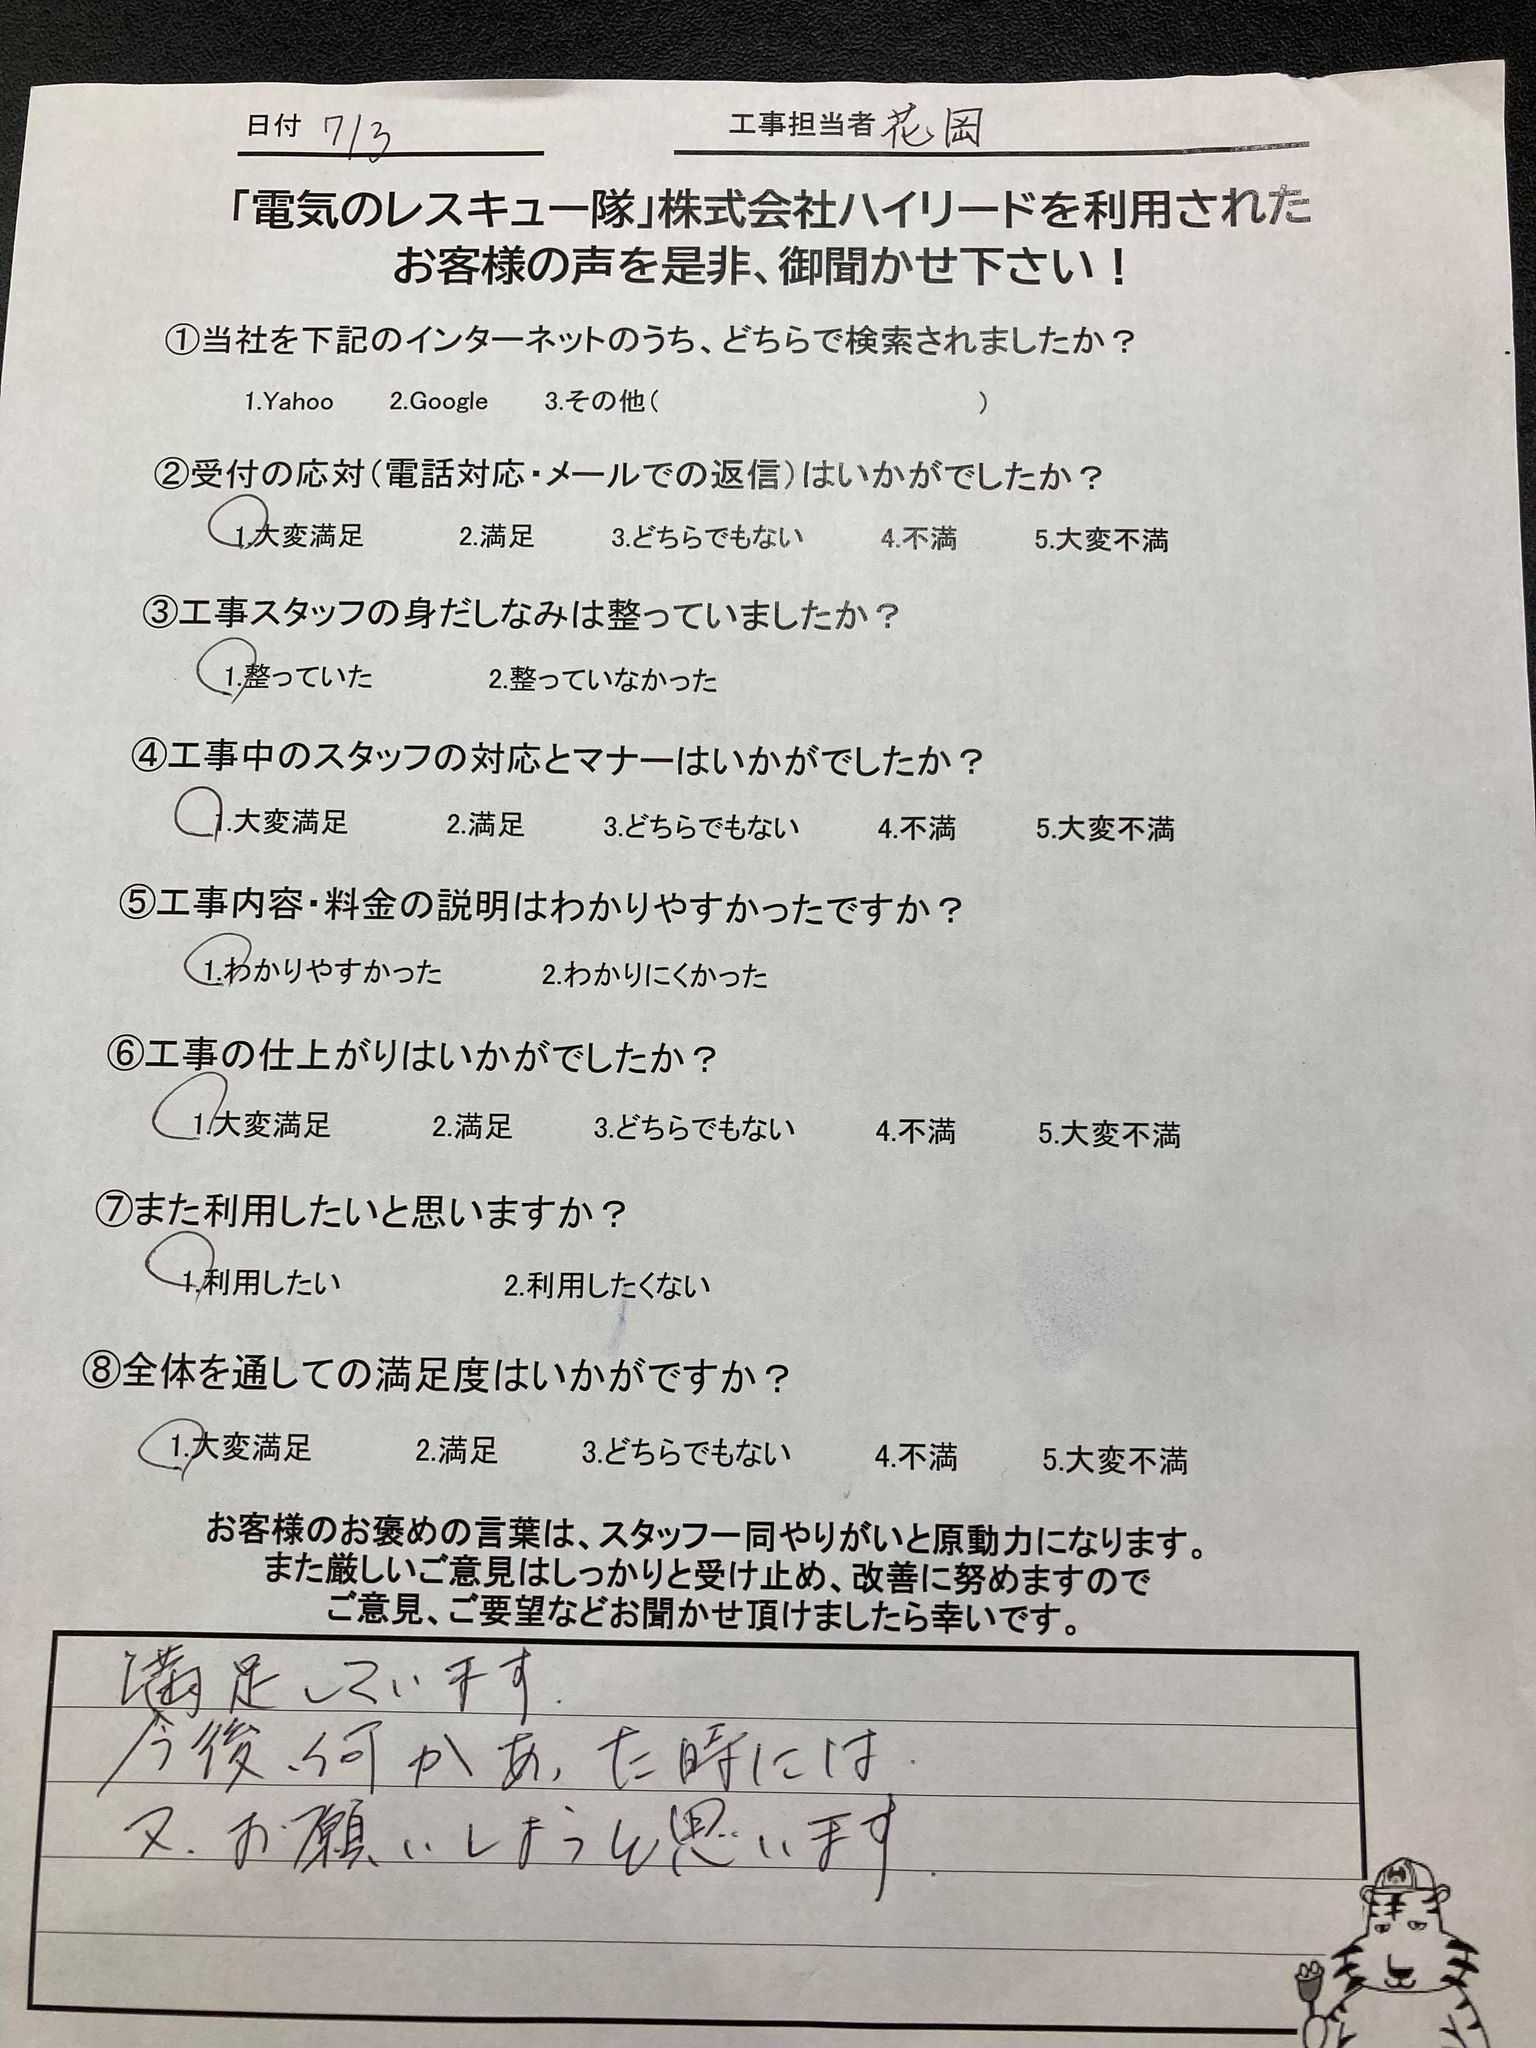 日付 7/3 工事担当者 花岡
「電気のレスキュー隊」株式会社ハイリードを利用された
お客様の声を是非、御聞かせ下さい！
①当社を下記のインターネットのうち、どちらで検索されましたか？
1.Yahoo 2.Google 3.その他( )
②受付の応対(電話対応・メールでの返信)はいかがでしたか？
1.大変満足 2.満足 3.どちらでもない 4.不満 5.大変不満
③工事スタッフの身だしなみは整っていましたか？
1.整っていた 2.整っていなかった
④工事中のスタッフの対応とマナーはいかがでしたか？
1.大変満足 2.満足 3.どちらでもない 4.不満 5.大変不満
⑤工事内容・料金の説明はわかりやすかったですか？
1.わかりやすかった 2.わかりにくかった
⑥工事の仕上がりはいかがでしたか？
1.大変満足 2.満足 3.どちらでもない 4.不満 5.大変不満
⑦また利用したいと思いますか？
1.利用したい 2.利用したくない
⑧全体を通しての満足度はいかがですか？
1.大変満足 2.満足 3.どちらでもない 4.不満 5.大変不満
お客様のお褒めの言葉は、スタッフ一同やりがいと原動力になります。
また厳しいご意見はしっかりと受け止め、改善に努めますので
ご意見、ご要望などお聞かせ頂けましたら幸いです。
満足しています.
今後、何かあった時には.
又、お願いしようと思います.